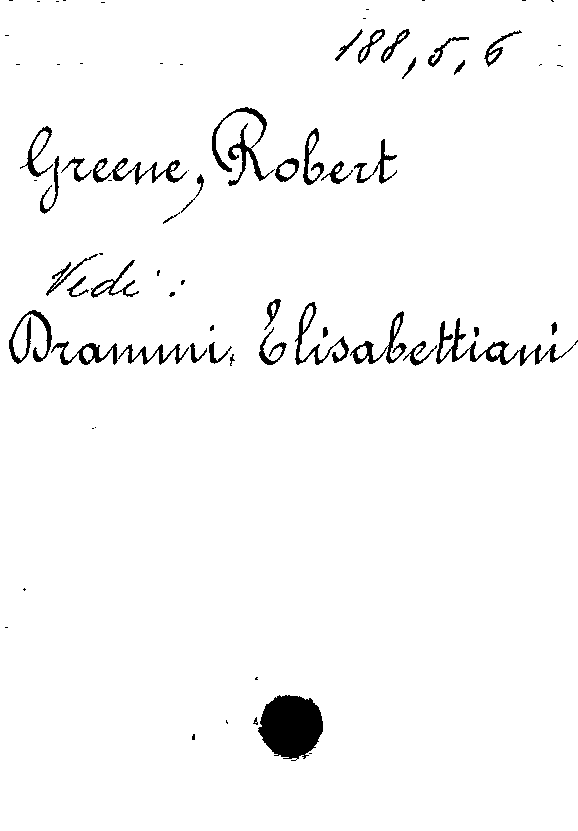 188, 5, 6
Greene, Robert
Vedi :
Drammi Elisabettiani